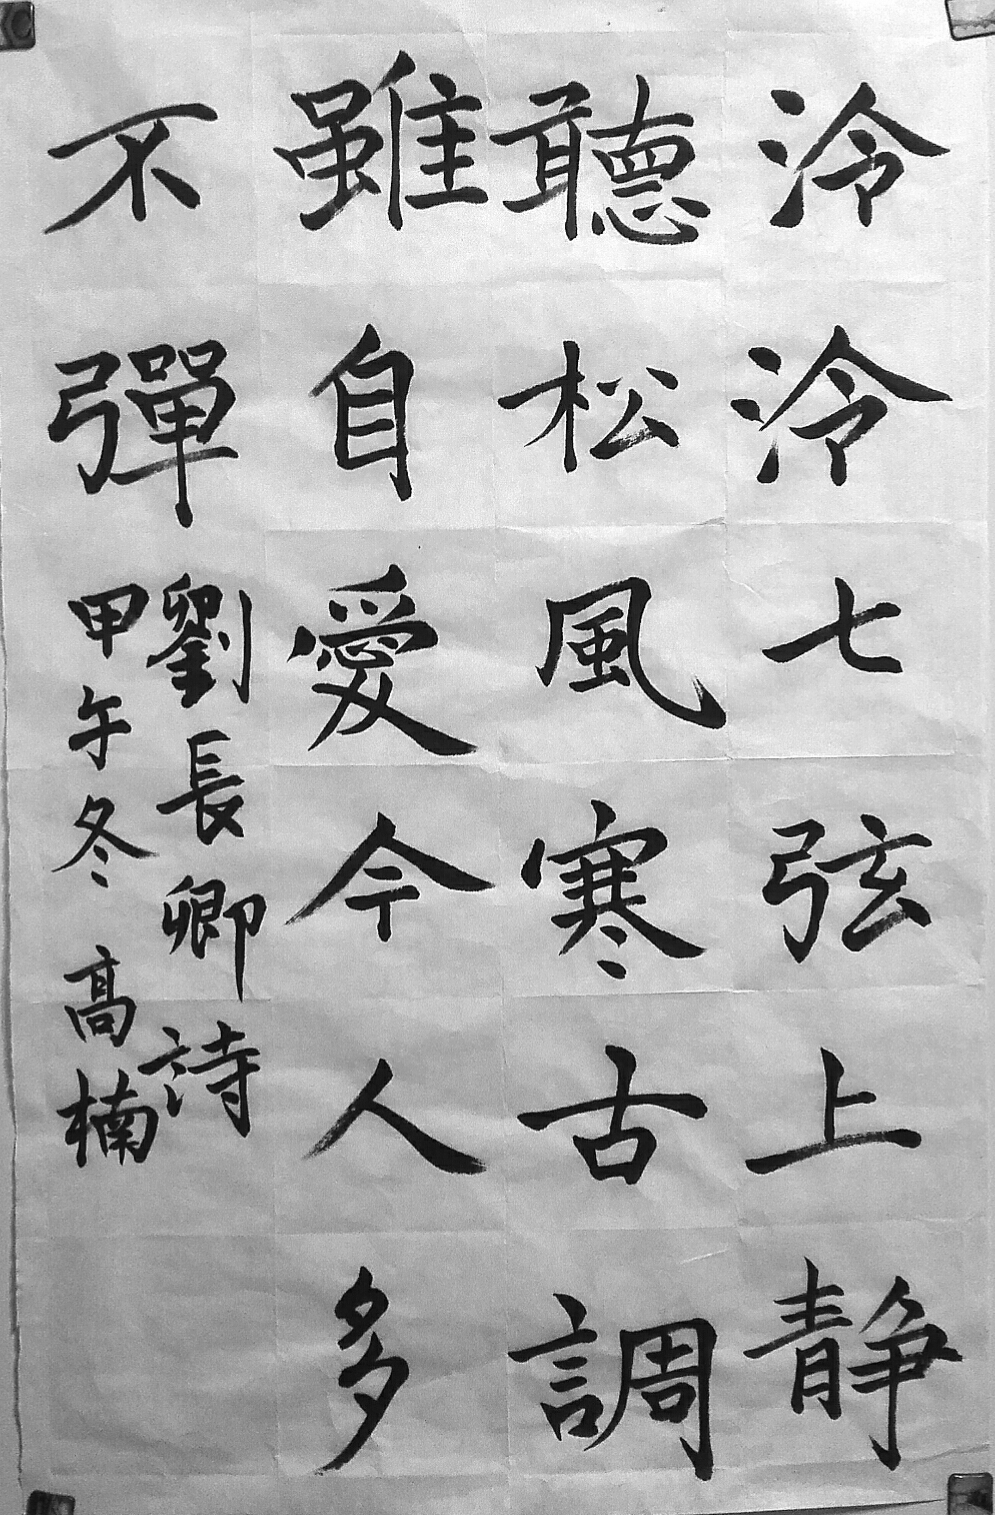 泠泠七弦上静
聽松風寒古調
雖自愛今人多
不彈
劉長卿詩
甲午冬高楠